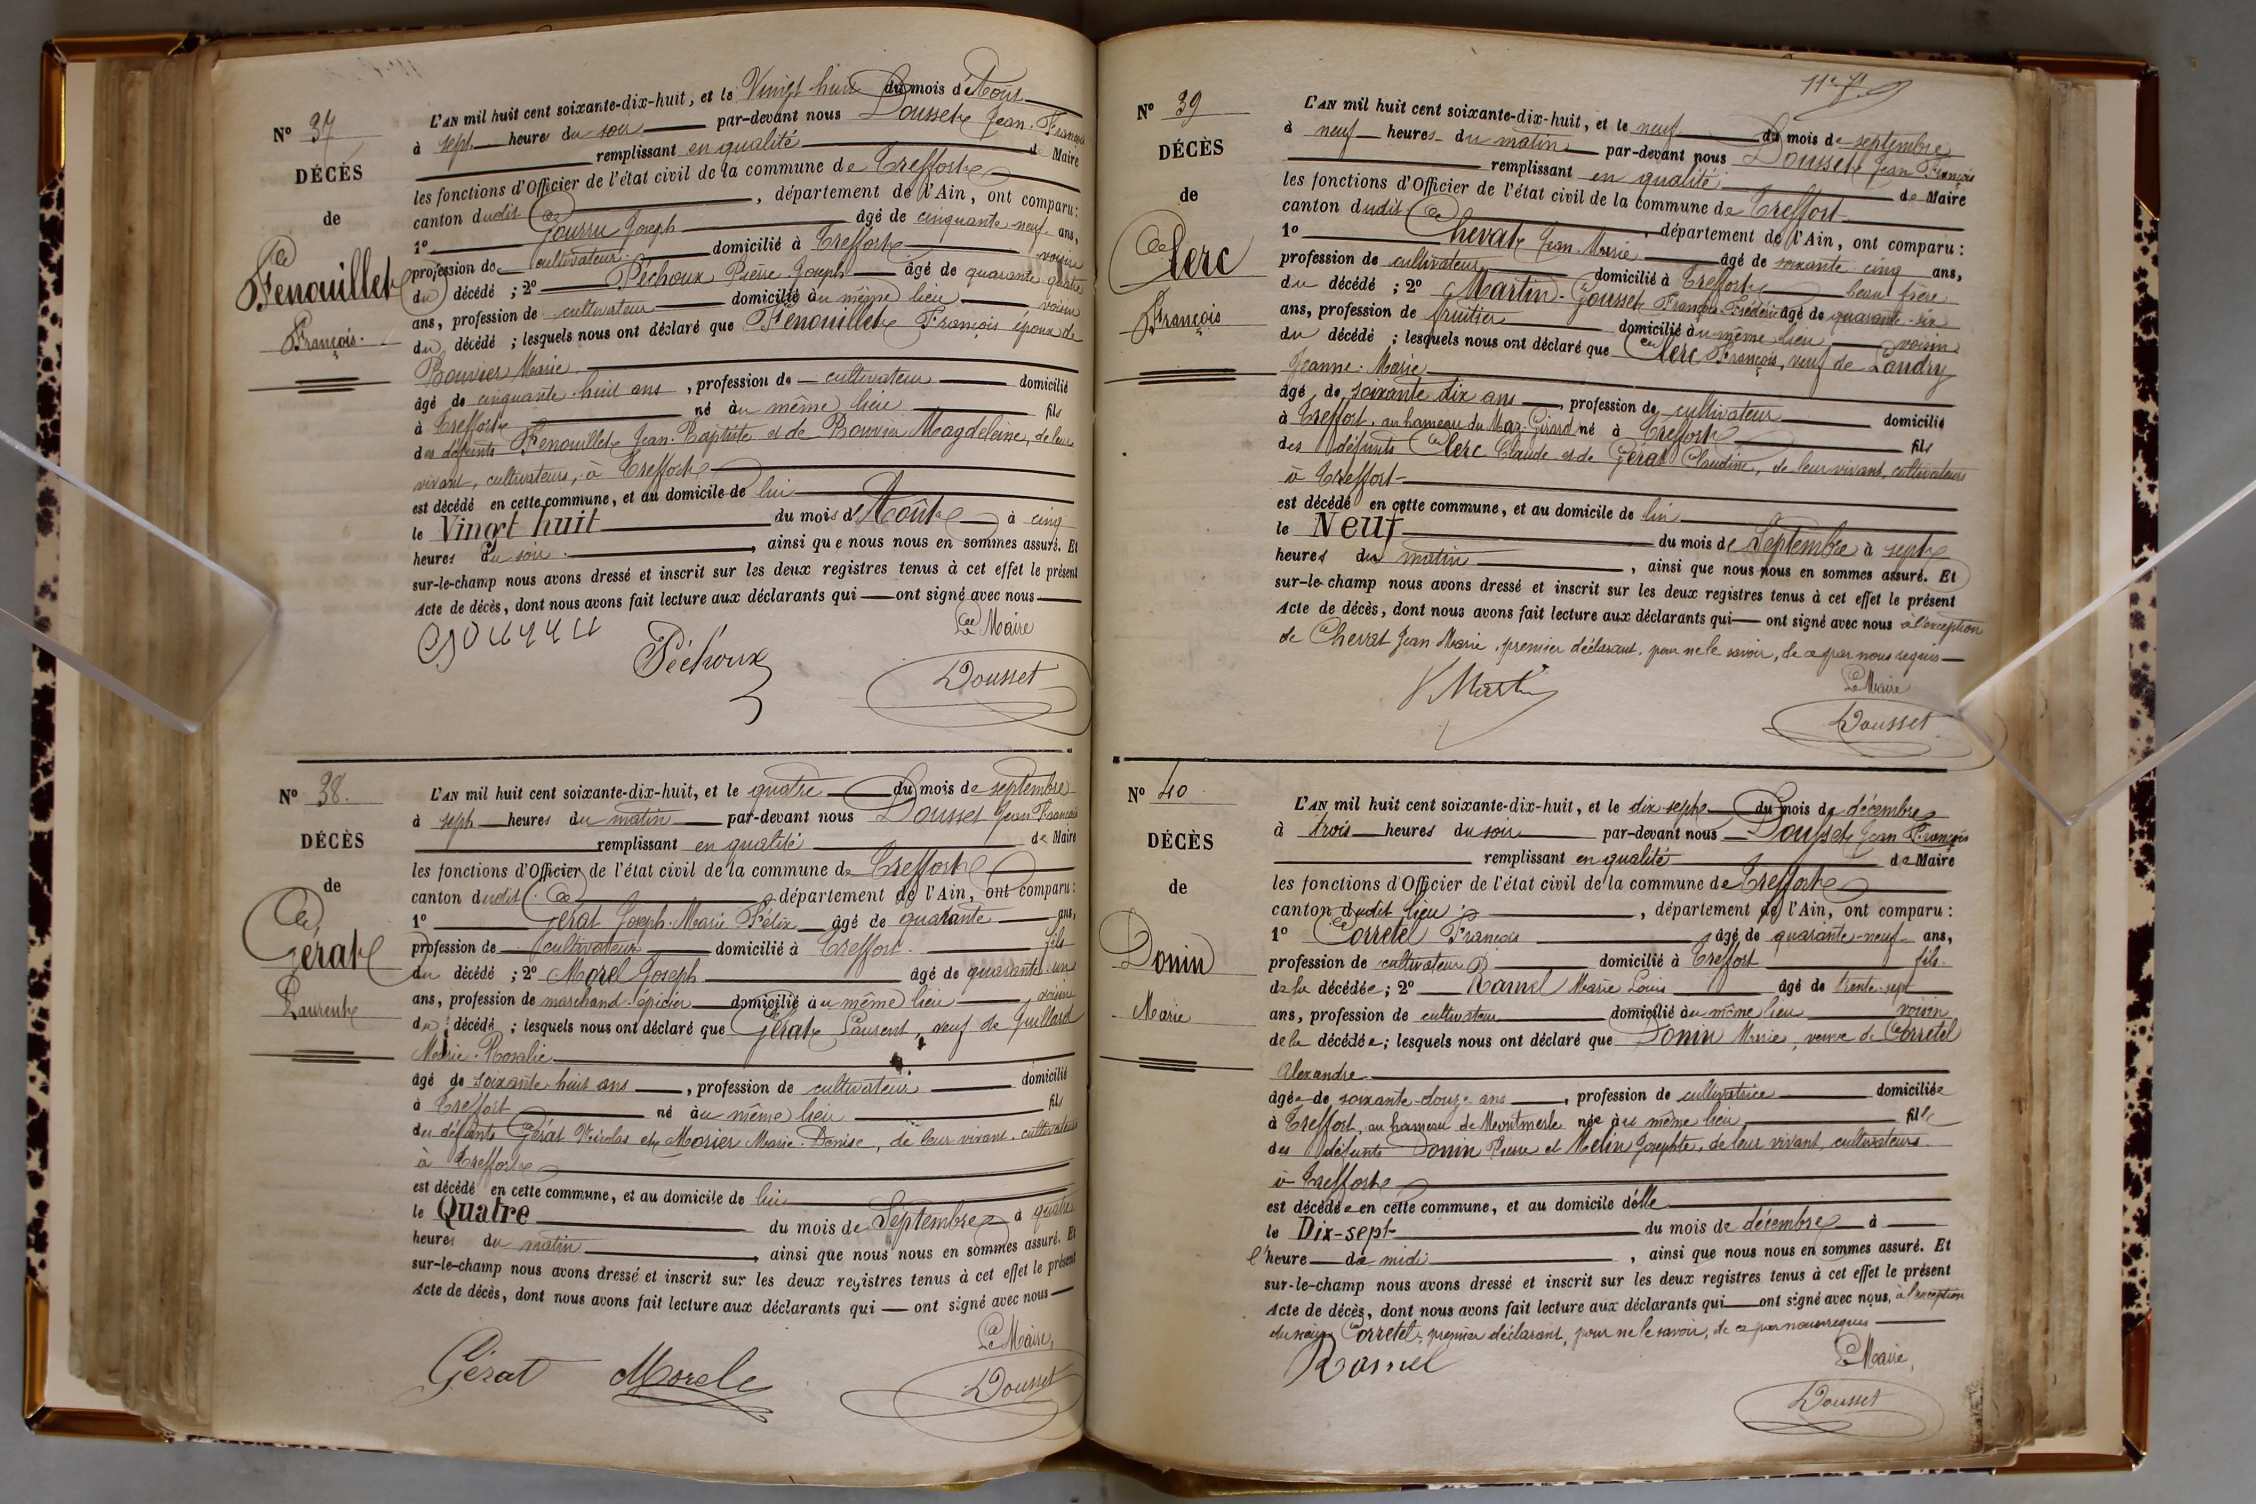 Nº 37
DÉCÈS
de
Fenouillet
François.
L'AN mil huit cent soixante-dix-huit, et le Vingt huit du mois d'Août
à sept heures du soir par-devant nous Dousset Jean François
remplissant en qualité de Maire
les fonctions d'Officier de l'état civil de la commune de Treffort
canton dudit, département de l'Ain, ont comparu:
1º Gourru Joseph âgé de cinquante-neuf ans,
profession de cultivateur domicilié à Treffort voisin
du décédé ; 2º Péchoux Pierre Joseph âgé de quarante quatre
ans, profession de cultivateur domicilié au même lieu voisin
du décédé ; lesquels nous ont déclaré que Fenouillet François époux de
Bouvier Marie
âgé de cinquante-huit ans, profession de cultivateur domicilié
à Treffort né au même lieu fils
des défunts Fenouillet Jean-Baptiste et de Bouvier Magdeleine, de leur
vivant, cultivateurs, à Treffort
est décédé en cette commune, et au domicile de lui
le Vingt huit du mois d'Août à cinq
heures du soir, ainsi que nous nous en sommes assuré. Et
sur-le-champ nous avons dressé et inscrit sur les deux registres tenus à cet effet le présent
Acte de décès, dont nous avons fait lecture aux déclarants qui ont signé avec nous
Le Maire
Péchoux
Dousset
Nº 38.
DÉCÈS
de
Gérat
Laurent
L'AN mil huit cent soixante-dix-huit, et le quatre du mois de septembre
à sept heures du matin par-devant nous Dousset Jean François
remplissant en qualité de Maire
les fonctions d'Officier de l'état civil de la commune de Treffort
canton dudit département de l'Ain, ont comparu:
1º Gérat Joseph-Marie Félix âgé de quarante ans,
profession de cultivateur domicilié à Treffort fils
du décédé ; 2º Morel Joseph âgé de quarante-un
ans, profession de marchand-épicier domicilié au même lieu voisin
du décédé ; lesquels nous ont déclaré que Gérat Laurent, veuf de Guillard
Marie-Rosalie
âgé de soixante-huit ans, profession de cultivateur domicilié
à Treffort né au même lieu fils
des défunts Gérat Nicolas et Morier Marie-Denise, de leur vivant, cultivateurs
à Treffort
est décédé en cette commune, et au domicile de lui
le Quatre du mois de Septembre à quatre
heures du matin, ainsi que nous nous en sommes assuré. Et
sur-le-champ nous avons dressé et inscrit sur les deux registres tenus à cet effet le présent
Acte de décès, dont nous avons fait lecture aux déclarants qui ont signé avec nous
Le Maire,
Gérat Morel
Dousset
Nº 39
DÉCÈS
de
Clerc
François
L'AN mil huit cent soixante-dix-huit, et le neuf du mois de septembre
à neuf heures du matin par-devant nous Dousset Jean François
remplissant en qualité de Maire
les fonctions d'Officier de l'état civil de la commune de Treffort
canton dudit, département de l'Ain, ont comparu :
1º Chevat Jean-Marie âgé de soixante cinq ans,
profession de cultivateur domicilié à Treffort beau frère
du décédé ; 2º Martin-Gousset François Frédéric âgé de quarante-six
ans, profession de fruitier domicilié au même lieu voisin
du décédé ; lesquels nous ont déclaré que Clerc François, veuf de Landry
Jeanne-Marie
âgé de soixante dix ans, profession de cultivateur domicilié
à Treffort, au hameau du Maz-Girard né à Treffort fils
des défunts Clerc Claude et de Gérat Claudine, de leur vivant, cultivateurs
à Treffort
est décédé en cette commune, et au domicile de lui
le Neuf du mois de Septembre à sept
heures du matin, ainsi que nous nous en sommes assuré. Et
sur-le-champ nous avons dressé et inscrit sur les deux registres tenus à cet effet le présent
Acte de décès, dont nous avons fait lecture aux déclarants qui ont signé avec nous à l'exception
de Chevat Jean Marie, premier déclarant, pour ne le savoir, de ce par nous requis
Le Maire
Martin
Dousset
Nº 40
DÉCÈS
de
Donin
Marie
L'AN mil huit cent soixante-dix-huit, et le dix sept du mois de décembre
à trois heures du soir par-devant nous Dousset Jean François
remplissant en qualité de Maire
les fonctions d'Officier de l'état civil de la commune de Treffort
canton dudit lieu, département de l'Ain, ont comparu :
1º Corretel François âgé de quarante-neuf ans,
profession de cultivateur domicilié à Treffort fils
de la décédée ; 2º Ramel Marie Louis âgé de trente-sept
ans, profession de cultivateur domicilié au même lieu voisin
de la décédée ; lesquels nous ont déclaré que Donin Marie, veuve de Corretel
Alexandre
âgée de soixante-douze ans, profession de cultivatrice domiciliée
à Treffort, au hameau de Montmerle née au même lieu fille
des défunts Donin Pierre et Melin Josephte, de leur vivant, cultivateurs
à Treffort
est décédée en cette commune, et au domicile d'elle
le Dix-sept du mois de décembre à
l'heure de midi, ainsi que nous nous en sommes assuré. Et
sur-le-champ nous avons dressé et inscrit sur les deux registres tenus à cet effet le présent
Acte de décès, dont nous avons fait lecture aux déclarants qui ont signé avec nous, à l'exception
Corretel, premier déclarant, pour ne le savoir, de ce par nous requis
Le Maire,
Ramel
Dousset